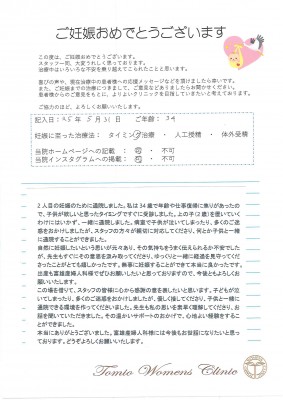 ご妊娠おめでとうございます
この度は、ご妊娠おめでとうございます。
スタッフ一同、大変うれしく思っております。
治療中はいろいろな不安を乗り越えてこられたことと思います。
喜びの声や、現在治療中の患者様への応援メッセージなどを頂けましたら幸いです。
また、ご妊娠までの治療につきまして、ご意見などありましたらお聞かせください。
患者様からのご意見をもとに、よりよいクリニックを目指していきたいと考えております。
ご協力のほど、よろしくお願いいたします。
記入日:25年5月31日 ご年齢:34
妊娠に至った治療法: タイミング治療 ・ 人工授精 ・ 体外受精
当院ホームページへの記載: 可 ・ 不可
当院インスタグラムへの掲載: 可 ・ 不可
2人目の妊娠のために通院しました。私は34歳で年齢や仕事復帰に焦りがあったの
で、子供が欲しいと思ったタイミングですぐに受診しました。上の子(2歳)を置いていく
わけにはいかず、一緒に通院しました。病室で子供が泣いてしまったり、多くのご迷
惑をおかけしましたが、スタッフの方々が親切に対応してくださり、何とか子供と一緒
に通院することができました。
自然に妊娠したいという思いが元々あり、その気持ちをうまく伝えられるか不安でした
が、先生もすぐにその意思を汲み取ってくださり、ゆっくりと一緒に経過を見守ってくだ
さったことがとても嬉しかったです。無事に妊娠することができて本当に良かったです。
出産も富雄産婦人科様でぜひお願いしたいと思っておりますので、今後ともよろしくお
願いいたします。
この場を借りて、スタッフの皆様に心から感謝の意を表したいと思います。子供が泣
いてしまったり、多くのご迷惑をおかけしましたが、優しく接してくださり、子供と一緒に
通院できる環境を作ってくださいました。先生も私の思いを素早く理解してくださり、お
話を聞いていただきました。その温かいサポートのおかげで、心地よい経験をするこ
とができました。
本当にありがとうございました。富雄産婦人科様には今後もお世話になりたいと思っ
ております。どうぞよろしくお願いいたします。
Tomio Womens Clinic